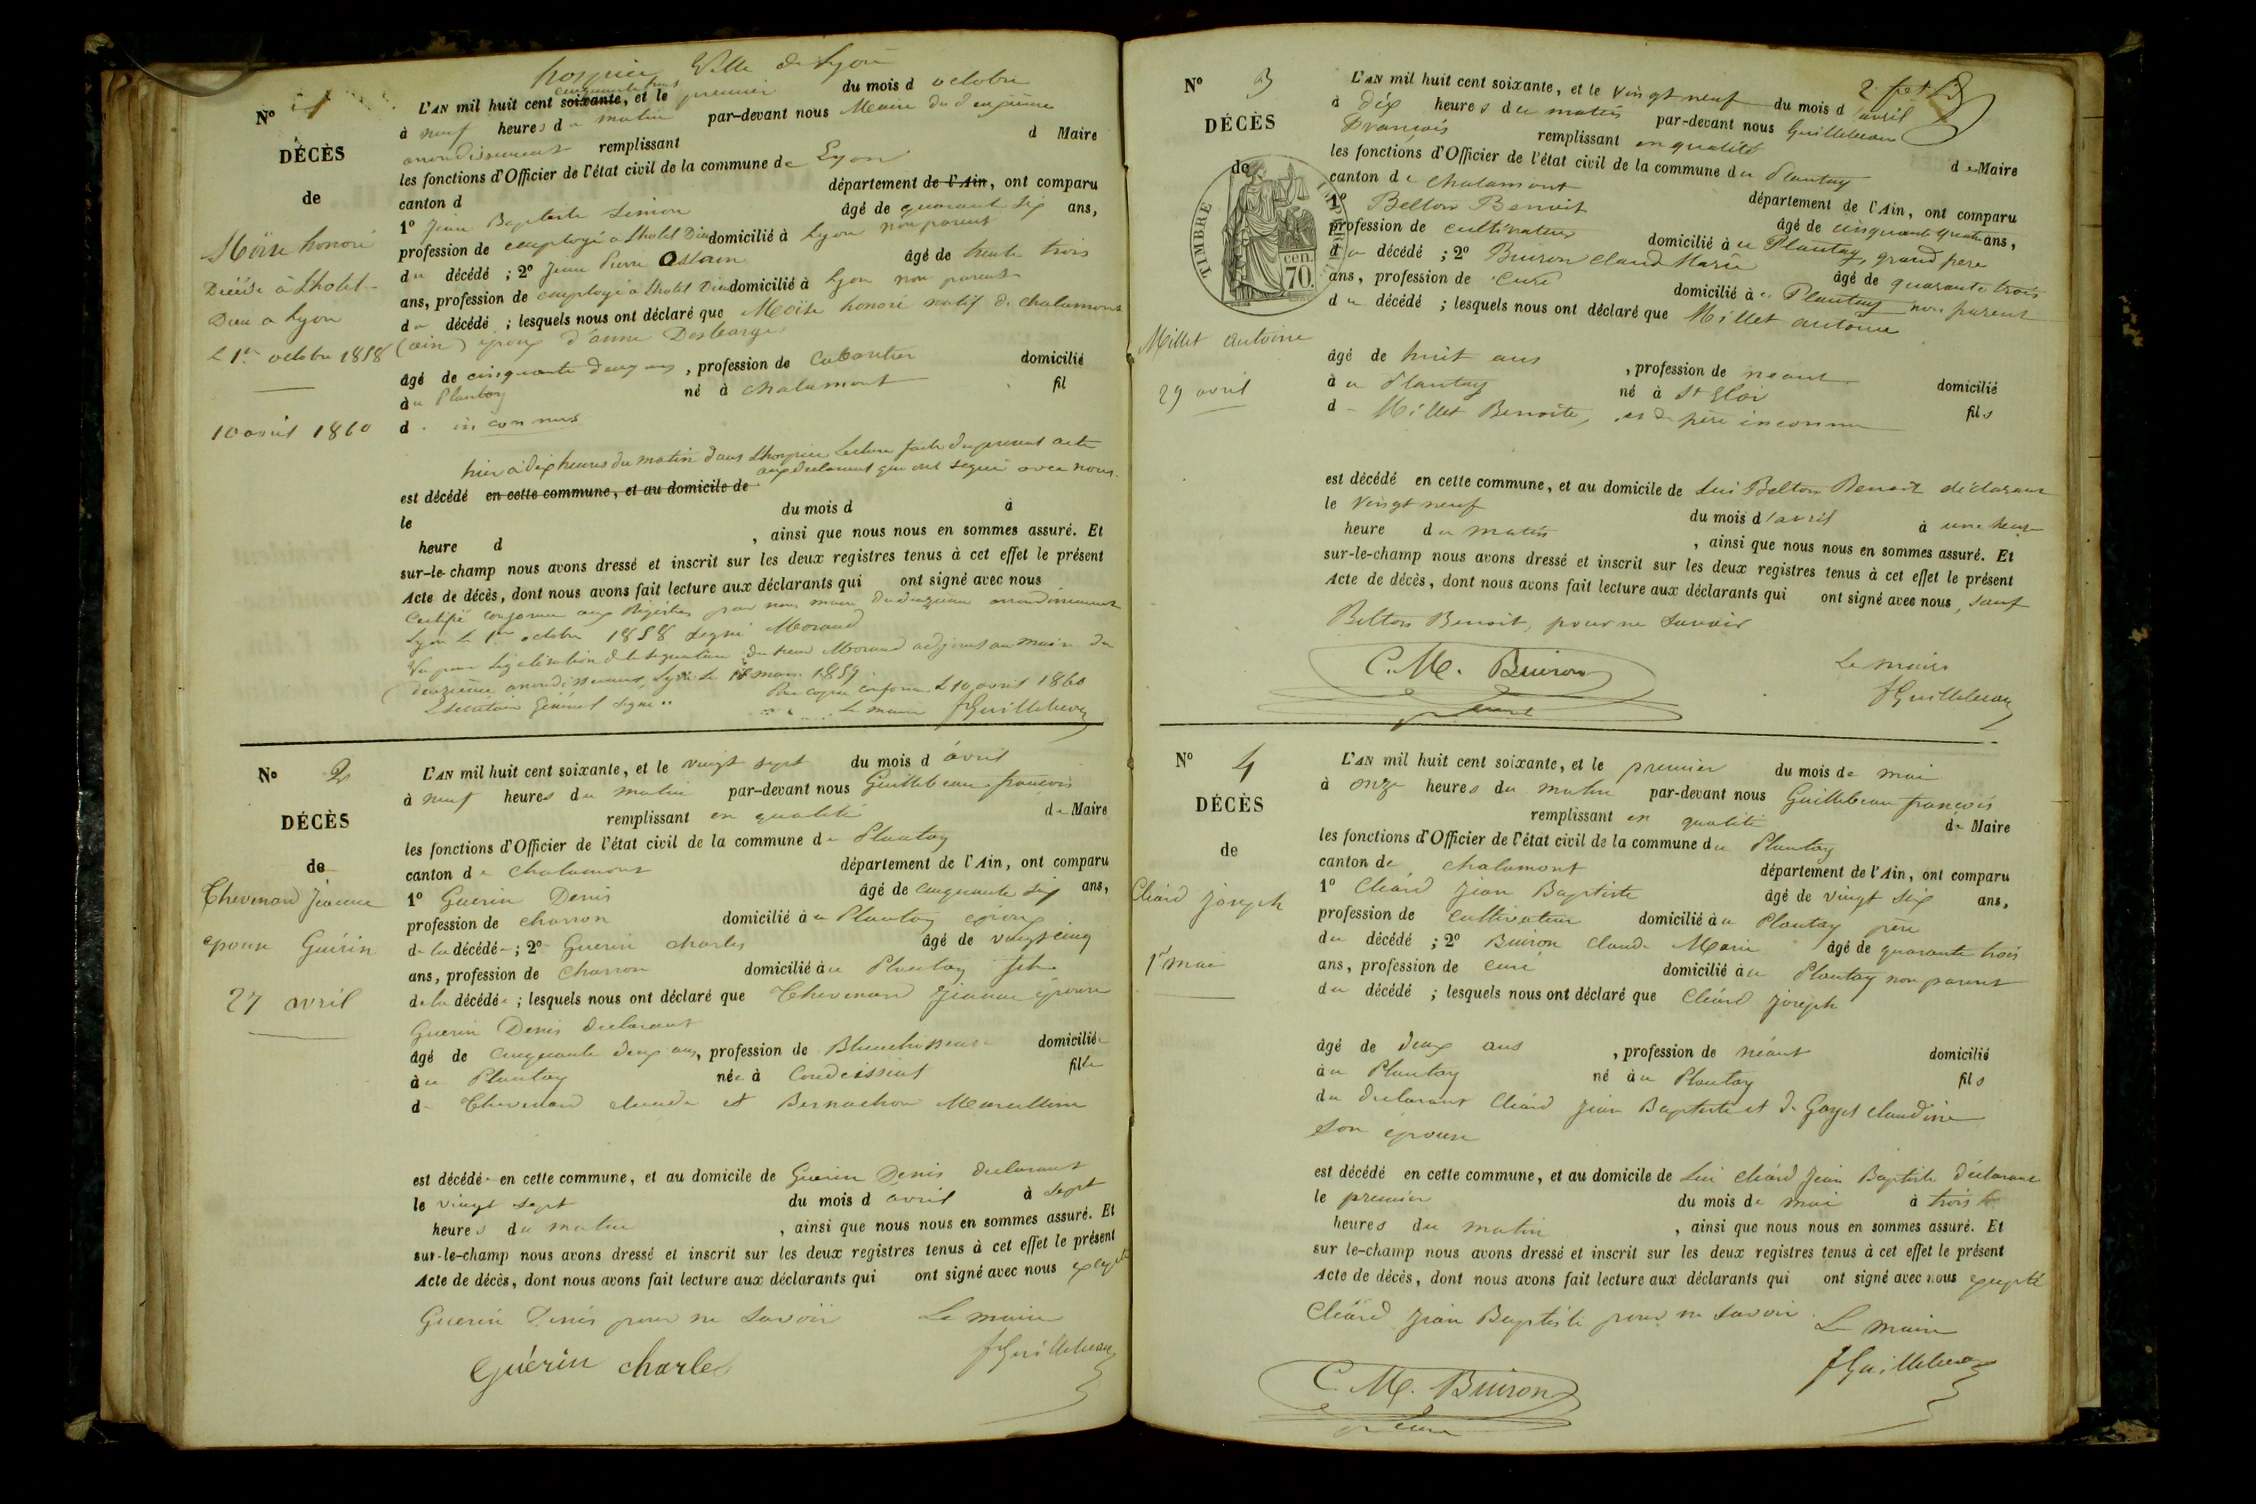 hospice Ville de Lyon
N° 1
DÉCÈS
de
Moïse honoré
Décédé à Lhotel-
Dieu a Lyon
le 1er octobre 1858
10 avril 1860
L'AN mil huit cent soixante, et le premier du mois d octobre
cinquante huit
à neuf heures du matin par-devant nous Maire du deuxième
arrondissement remplissant d Maire
les fonctions d'Officier de l'état civil de la commune de Lyon
canton d département de l'Ain, ont comparu
1° Jean Baptiste Simon âgé de quarante six ans,
profession de employé a Lhotel Dieu domicilié à Lyon non parent
du décédé ; 2° Jean Pierre âgé de trente trois
ans, profession de employé a Lhotel Dieu domicilié à Lyon non parent
du décédé ; lesquels nous ont déclaré que Moïse honoré natif de chalamont
(ain) epoux d'anne
âgé de cinquante deux ans, profession de domicilié
au Plantay né à chalamont fil
d inconnus
hier à dix heures du matin dans Lhospice Lecture faite du present acte
aux declarants qui ont signé avec nous.
est décédé en cette commune, et au domicile de
le du mois d à
heure d , ainsi que nous nous en sommes assuré. Et
sur-le-champ nous avons dressé et inscrit sur les deux registres tenus à cet effet le présent
Acte de décès, dont nous avons fait lecture aux déclarants qui ont signé avec nous
Certifié conforme aux Registres par nous maire du deuxieme arrondissement
Lyon le 1er octobre 1858 signé Morand
Vu pour legalisation de la signature du sieur Morand adjoint au maire du
deuxième arrondissement, Lyon le mars 1859
Le secretaire General signé Pour copie conforme le 10 avril 1860
Le maire fGuillebeau
N° 2
DÉCÈS
de
Thevenard Jeanne
epouse Guérin
27 avril
L'AN mil huit cent soixante, et le vingt sept du mois d avril
à neuf heures du matin par-devant nous Guillebeau françois
remplissant en qualité de Maire
les fonctions d'Officier de l'état civil de la commune de Plantay
canton de chalamont département de l'Ain, ont comparu
1° Guerin Denis âgé de cinquante six ans,
profession de charron domicilié à u Plantay epoux
de la décédée ; 2° Guerin charles âgé de vingt cinq
ans, profession de Charron domicilié à u Plantay fils
de la décédée ; lesquels nous ont déclaré que Thevenard Jeanne epouse
Guerin Denis declarant
âgé de cinquante deux ans, profession de Blanchisseuse domiciliée
à u Plantay née à Condeissiat fille
de Thevenard claude et Bernachon Marcelline
est décédée en cette commune, et au domicile de Guerin Denis declarant
le vingt sept du mois d avril à sept
heures du matin , ainsi que nous nous en sommes assuré. Et
sur-le-champ nous avons dressé et inscrit sur les deux registres tenus à cet effet le présent
Acte de décès, dont nous avons fait lecture aux déclarants qui ont signé avec nous excepté
Guerin Denis pour ne savoir Le maire
Guérin charles fGuillebeau
2
N° 3
DÉCÈS
de
TIMBRE IMPÉRIAL
70 cen.
Millet antoine
29 avril
L'AN mil huit cent soixante, et le vingt neuf du mois d'avril
à dix heures du matin par-devant nous Guillebeau
François remplissant en qualité de Maire
les fonctions d'Officier de l'état civil de la commune du Plantay
canton de chalamont département de l'Ain, ont comparu
1° Belton Benoit âgé de cinquante quatre ans,
profession de cultivateur domicilié à u Plantay, grand pere
du décédé ; 2° Buiron Claude Marie âgé de quarante trois
ans, profession de Curé domicilié à u Plantay non parent
du décédé ; lesquels nous ont déclaré que Millet antoine
âgé de huit ans , profession de neant domicilié
à u Plantay né à St Eloi fils
d Millet Benoîte, et de père inconnu
est décédé en cette commune, et au domicile de Lui Belton Benoit déclarant
le vingt neuf du mois d'avril à une heure
heure du matin , ainsi que nous nous en sommes assuré. Et
sur-le-champ nous avons dressé et inscrit sur les deux registres tenus à cet effet le présent
Acte de décès, dont nous avons fait lecture aux déclarants qui ont signé avec nous, sauf
Belton Benoit, pour ne savoir
C. M. Buiron Le maire
curé fGuillebeau
N° 4
DÉCÈS
de
Cléard joseph
1er mai
L'AN mil huit cent soixante, et le premier du mois de mai
à onze heures du matin par-devant nous Guillebeau françois
remplissant en qualité de Maire
les fonctions d'Officier de l'état civil de la commune du Plantay
canton de chalamont département de l'Ain, ont comparu
1° Cléard Jean Baptiste âgé de vingt six ans,
profession de cultivateur domicilié à u Plantay père
du décédé ; 2° Buiron claude Marie âgé de quarante trois
ans, profession de curé domicilié à u Plantay non parent
du décédé ; lesquels nous ont déclaré que Cléard joseph
âgé de deux ans , profession de néant domicilié
à u Plantay né à u Plantay fils
du declarant Cléard Jean Baptiste et de Gayet claudine
son epouse
est décédé en cette commune, et au domicile de Lui cléard Jean Baptiste déclarant
le premier du mois de mai à trois
heures du matin , ainsi que nous nous en sommes assuré. Et
sur le-champ nous avons dressé et inscrit sur les deux registres tenus à cet effet le présent
Acte de décès, dont nous avons fait lecture aux déclarants qui ont signé avec nous excepté
Cléard Jean Baptiste pour ne savoir Le maire
C. M. Buiron fGuillebeau
curé